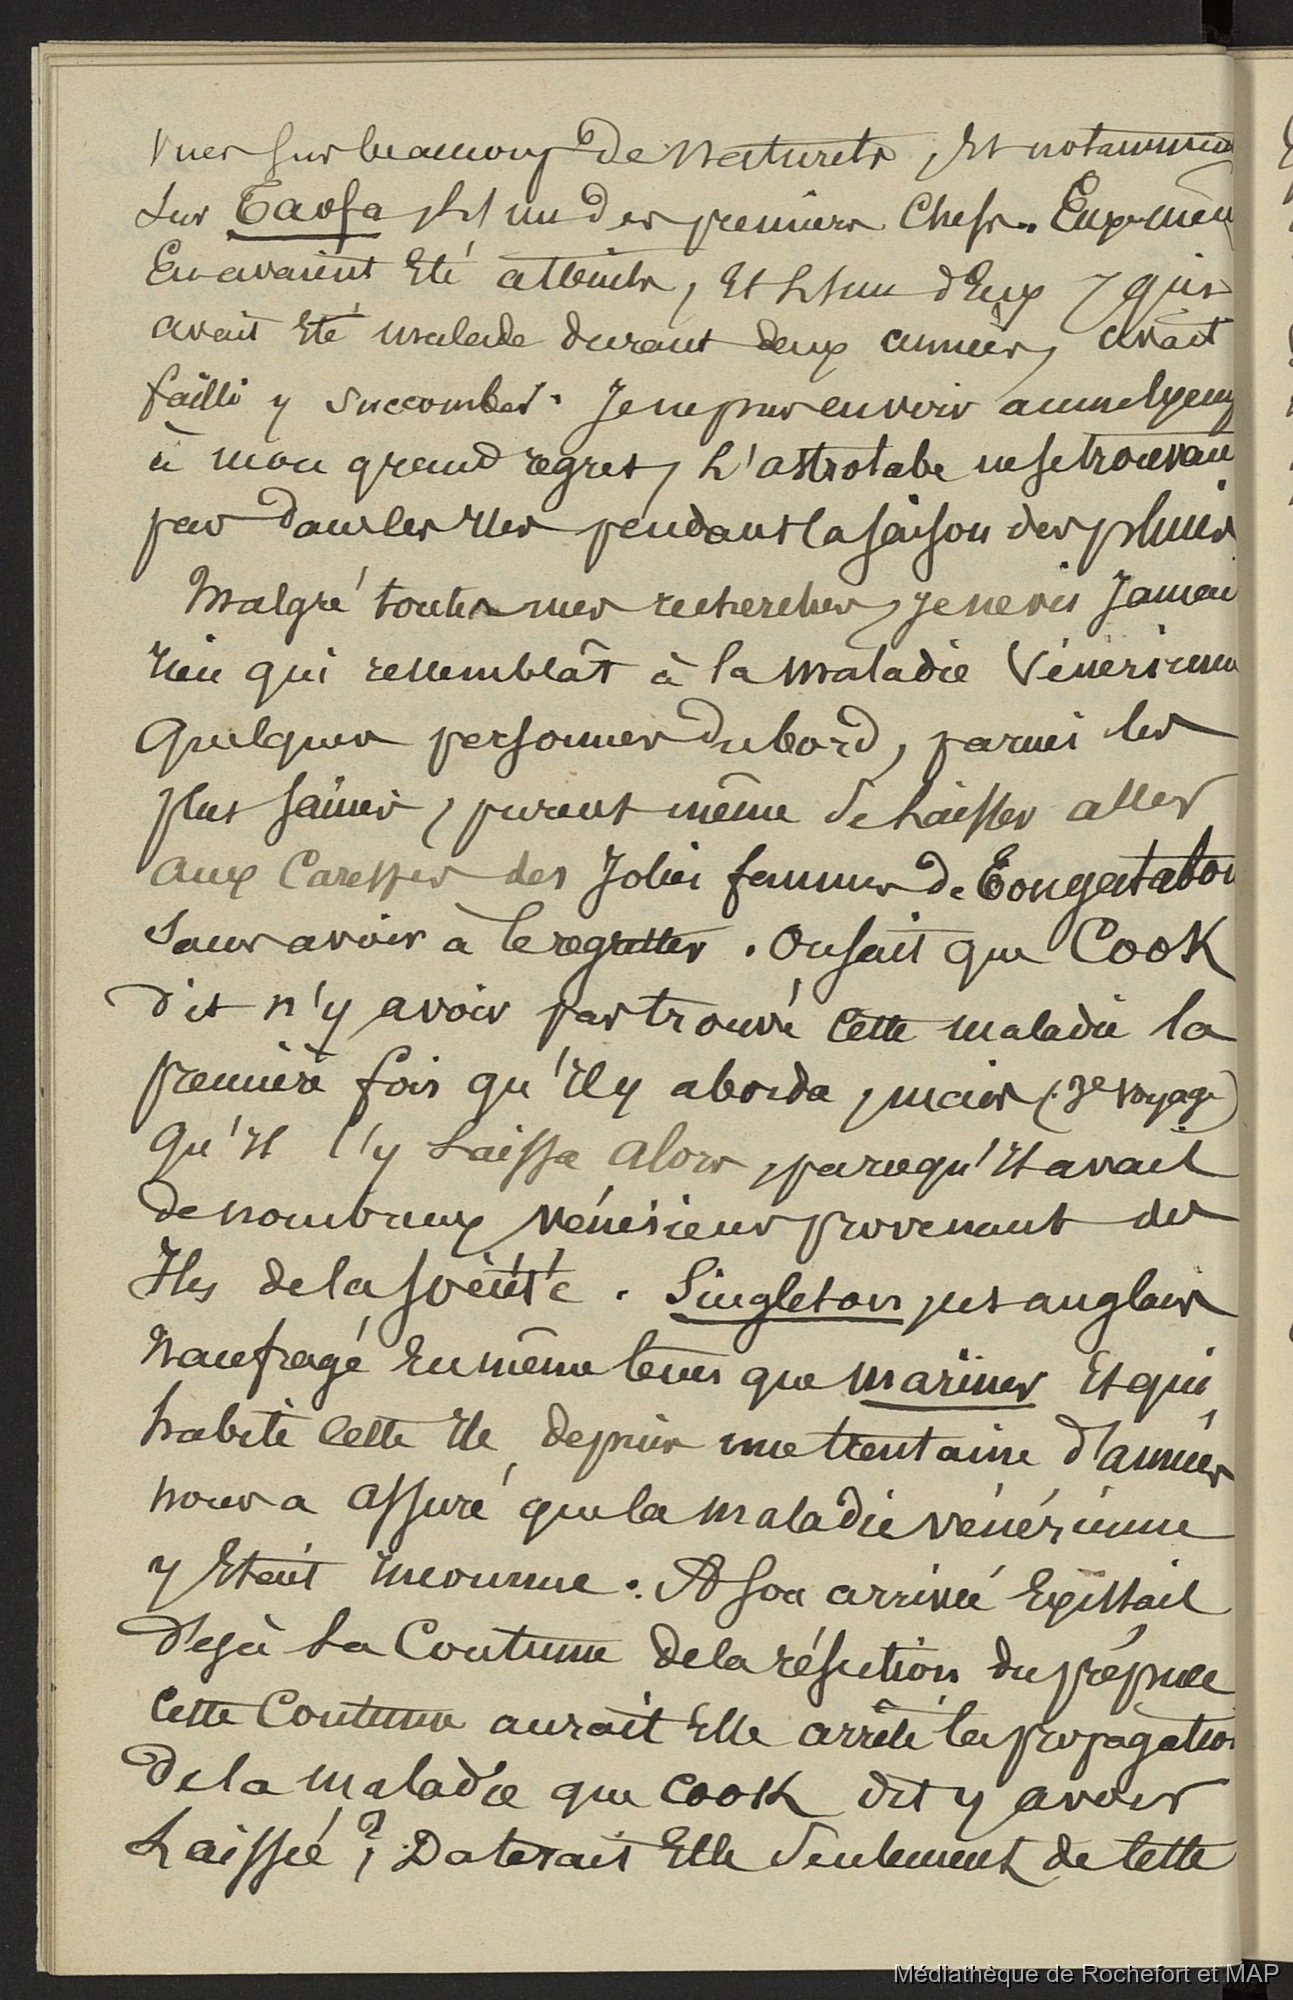 vues sur beaucoup de naturels, et notamment
sur Taofa, l'un des premiers chefs. Eux-mêm
En avaient Eté atteints, Et L'un d'Eux, qui
avait Eté malade durant deux années, avait
failli y succomber. Je ne pus en voir aucun
à mon grand regret, L'astrolabe ne se trouvant
pas dans les Iles pendant la saison des pluies
Malgré toutes mes recherches, je ne vis Jamai
rien qui ressemblât à la maladie Vénérienne
Quelques personnes du bord, parmi les
plus saines, purent même se Laisser aller
aux Caresses des Jolies femmes de Tongatabou
sans avoir à le regretter. On sait que Cook
dit n'y avoir pas trouvé cette maladie la
première fois qu'Il y aborda, mais (3e voyage)
Qu'Il l'y Laissa alors, parcequ'Il avait
de nombreux vénériens provenant des
Iles de la société. Singleton, cet anglais
Naufragé En même tems que Mariner Et qui
habite cette Ile, depuis une trentaine d'années
nous a assuré que la maladie vénérienne
y Etait inconnue. A son arrivée Existait
déjà La Coutume de la résection du prépuce
Cette Coutume aurait Elle arrêté la propagation
de la maladie que Cook dit y avoir
Laissée? Daterait Elle seulement de cette
Médiathèque de Rochefort et MAP